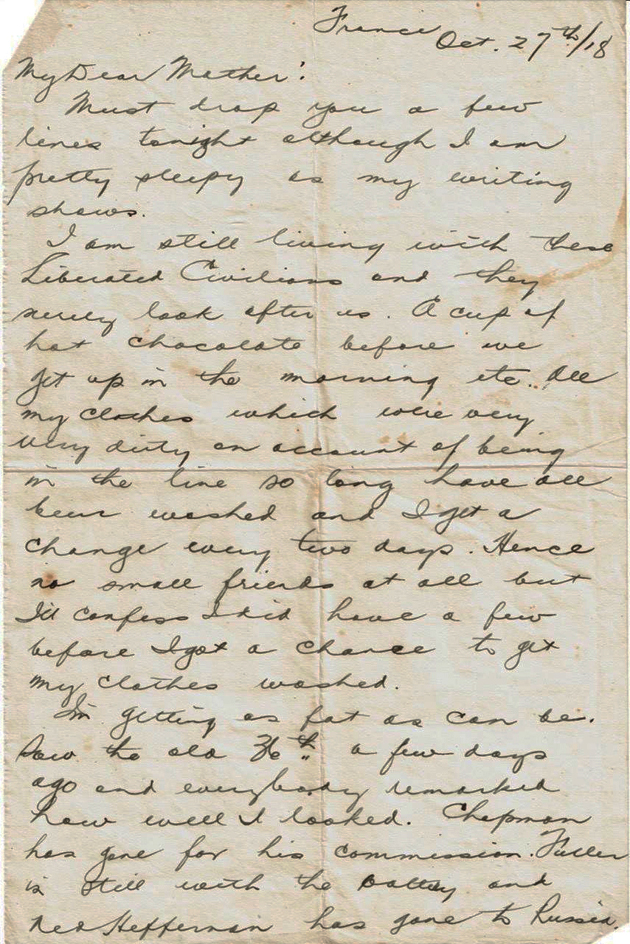 France Oct. 27th/18
My Dear Mother:
Must drop you a few
lines tonight although I am
pretty sleepy as my writing
shows.
I am still living with these
Liberated Civilians and they
surely look after us. A cup of
hot chocolate before we
get up in the morning etc. All
my clothes which were very
very dirty on account of being
in the line so long have all
been washed and I get a
change every two days. Hence
no small friends at all but
I'll confess I did have a few
before I got a chance to get
my clothes washed.
I'm getting as fat as can be.
Saw the old 36th a few days
ago and everybody remarked
how well I looked. Chapman
has gone for his commission. Fuller
is still with the battery and
Ned Heffernan has gone to Russia.